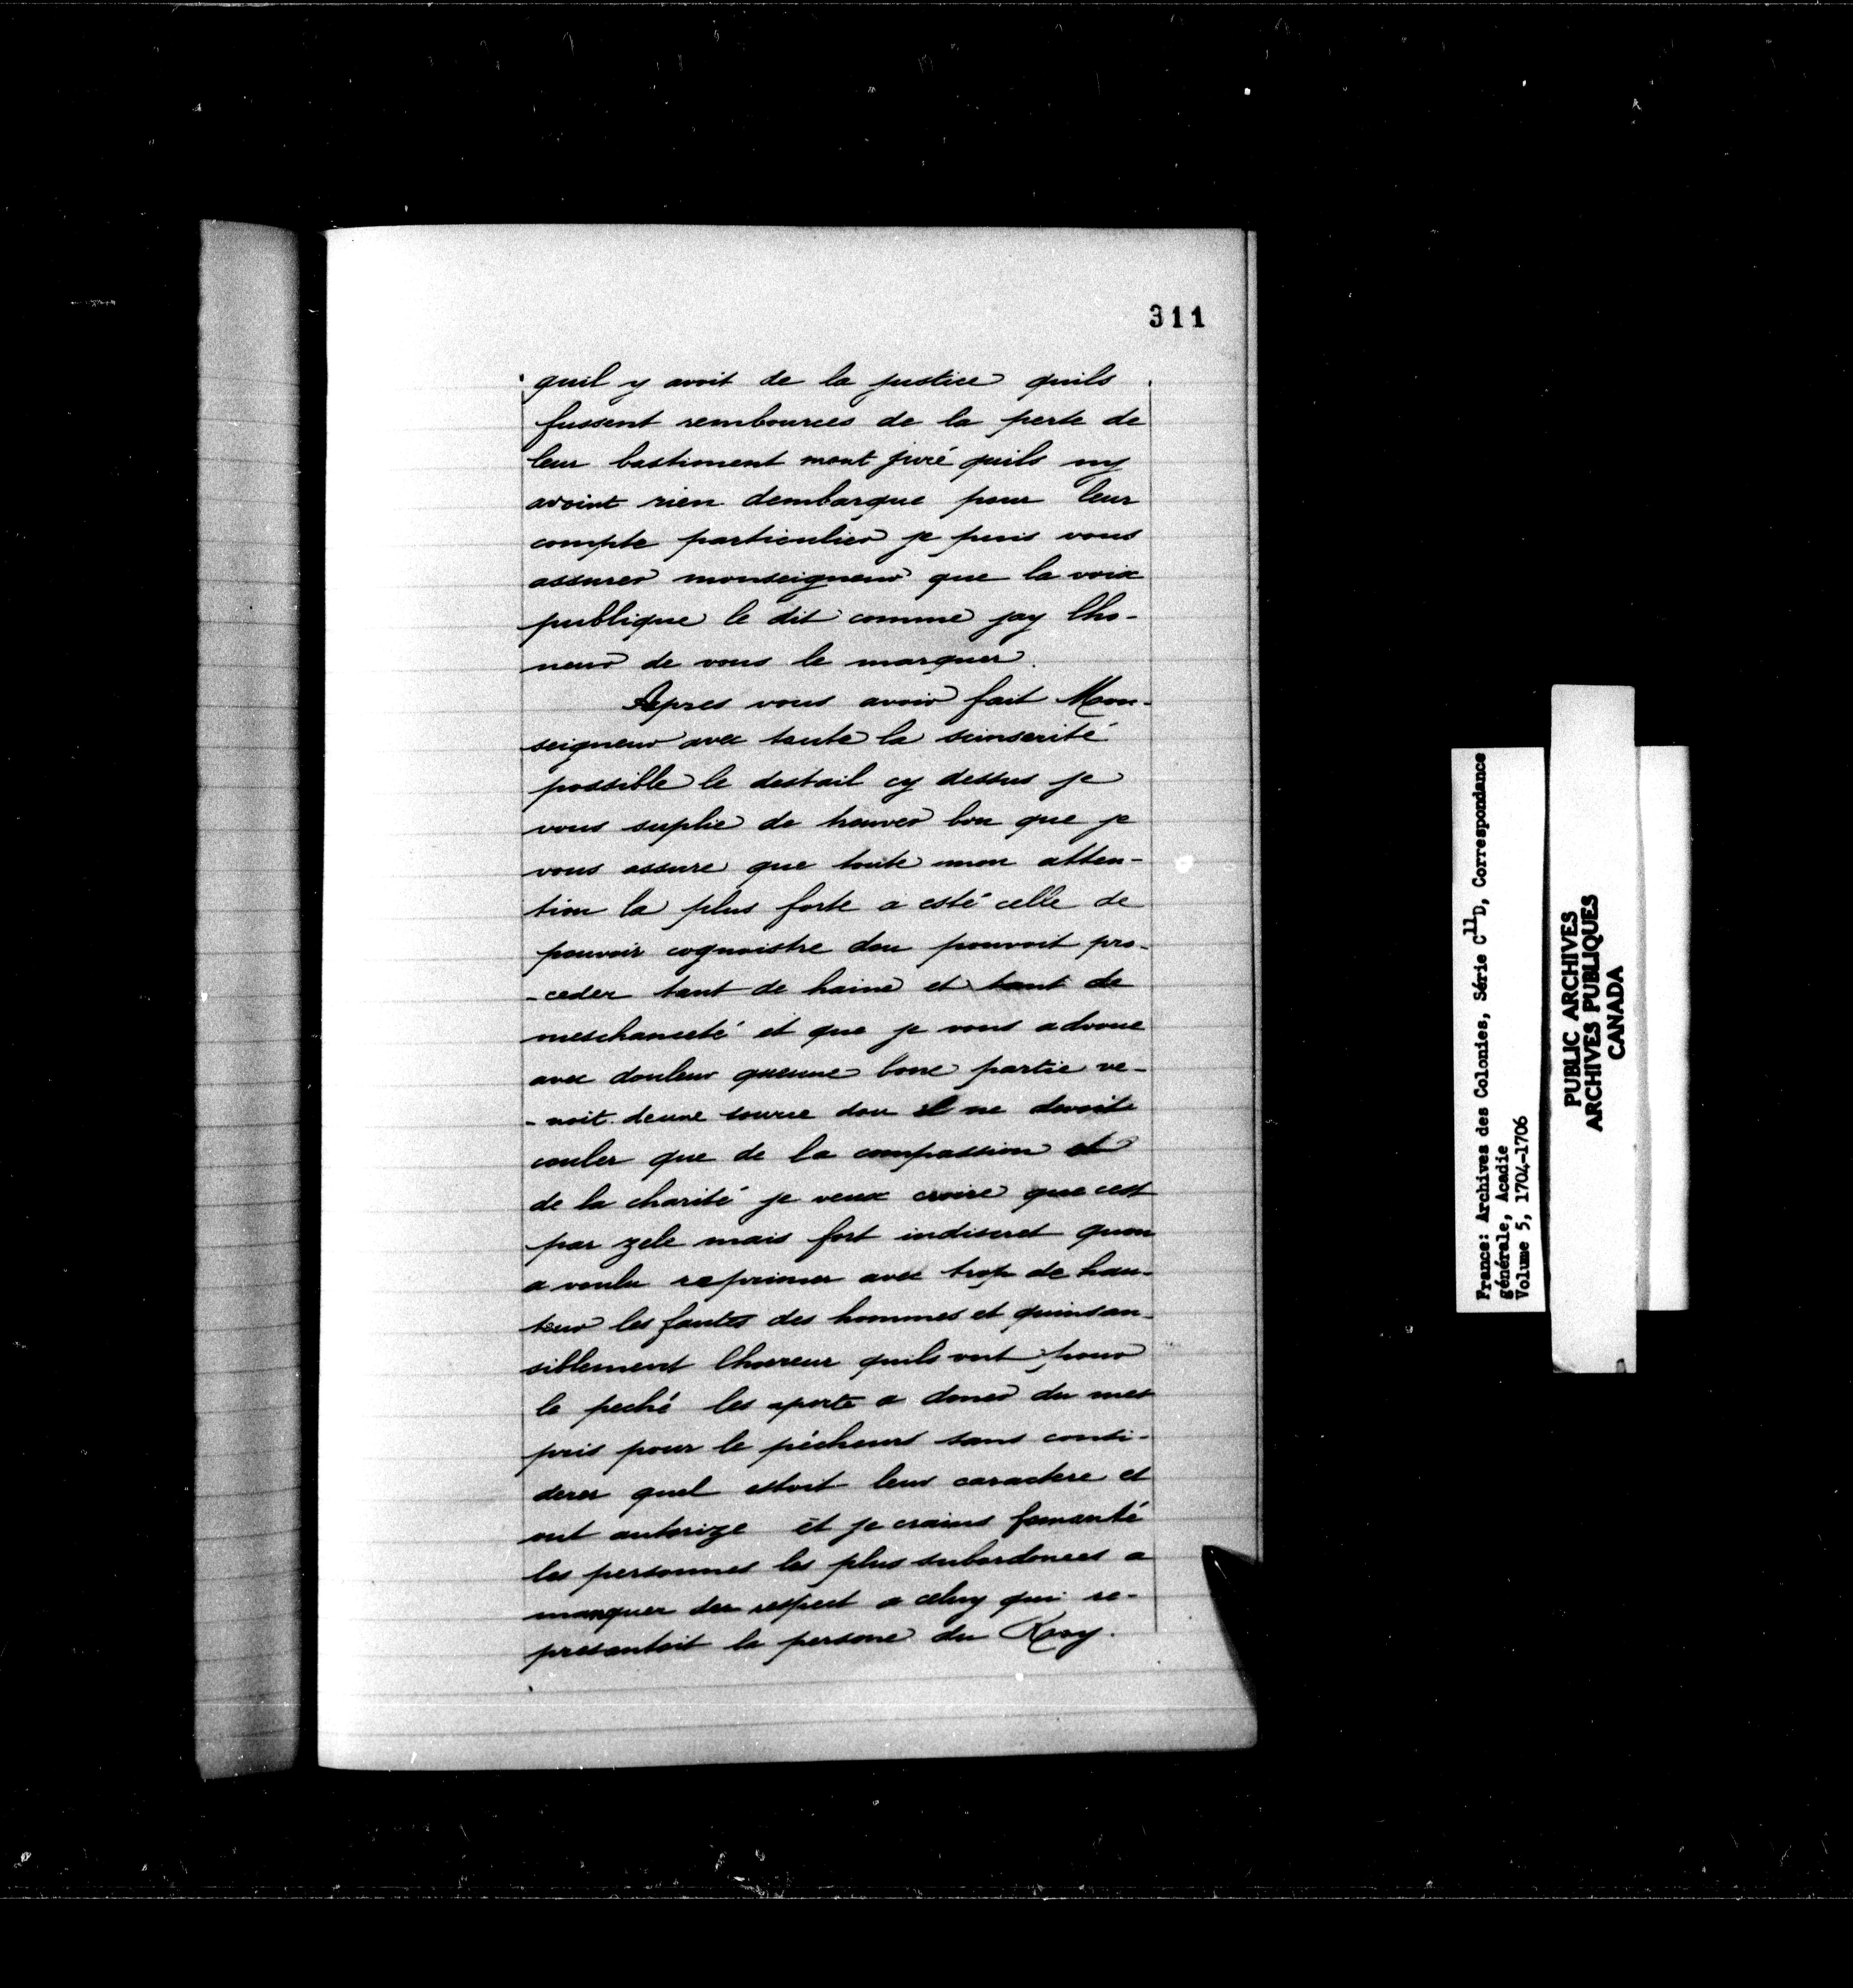 311
quil y avoit de la justice quils
fussent rembources de la perte de
leur bastiment mont juré quils ny
avoint rien dembarque pour leur
compte particulier je puis vous
assurer monseigneur que la voix
publique le dit comme jay lho-
neur de vous le marquer.
Apres vous avoir fait Mon-
seigneur avec toute la sinserité
possible le destail cy dessus je
vous suplie de trouver bon que je
vous assure que toute mon atten-
tion la plus forte a esté celle de
pouvoir cognoistre dou pouvoit pro-
-ceder tant de haine et tant de
meschanceté et que je vous advoue
avec douleur queune bone partie ve-
-noit deune source dou il ne devoit
couler que de la compassion et
de la charité je veux croire que cest
par zele mais fort indiscret quon
a voulu reprimer avec trop de hau-
teur les fautes des hommes et quinsan-
siblement lhoreur quils ont pour
le peché les aporte a doner du mes
pris pour le pécheurs sans consi-
derer quel estoit leur caractere et
ont autorize et je crains fomanté
les personnes les plus subordonees a
manquer de respect a celuy qui re-
presantoit la persone du Roy.
France: Archives des Colonies, Série C11D, Correspondance
générale, Acadie
Volume 5, 1704-1706
PUBLIC ARCHIVES
ARCHIVES PUBLIQUES
CANADA